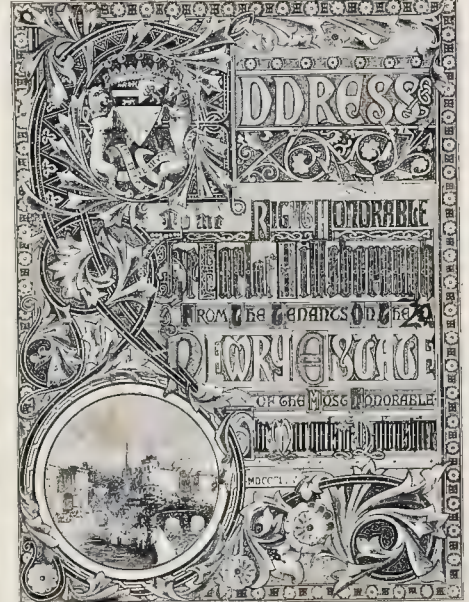 ADDRESS
TO THE RIGHT HONORABLE
The Earl of Hillsborough
FROM THE TENANTS ON THE
NEWRY ESTATE
OF THE MOST HONORABLE
The Marquis of Downshire